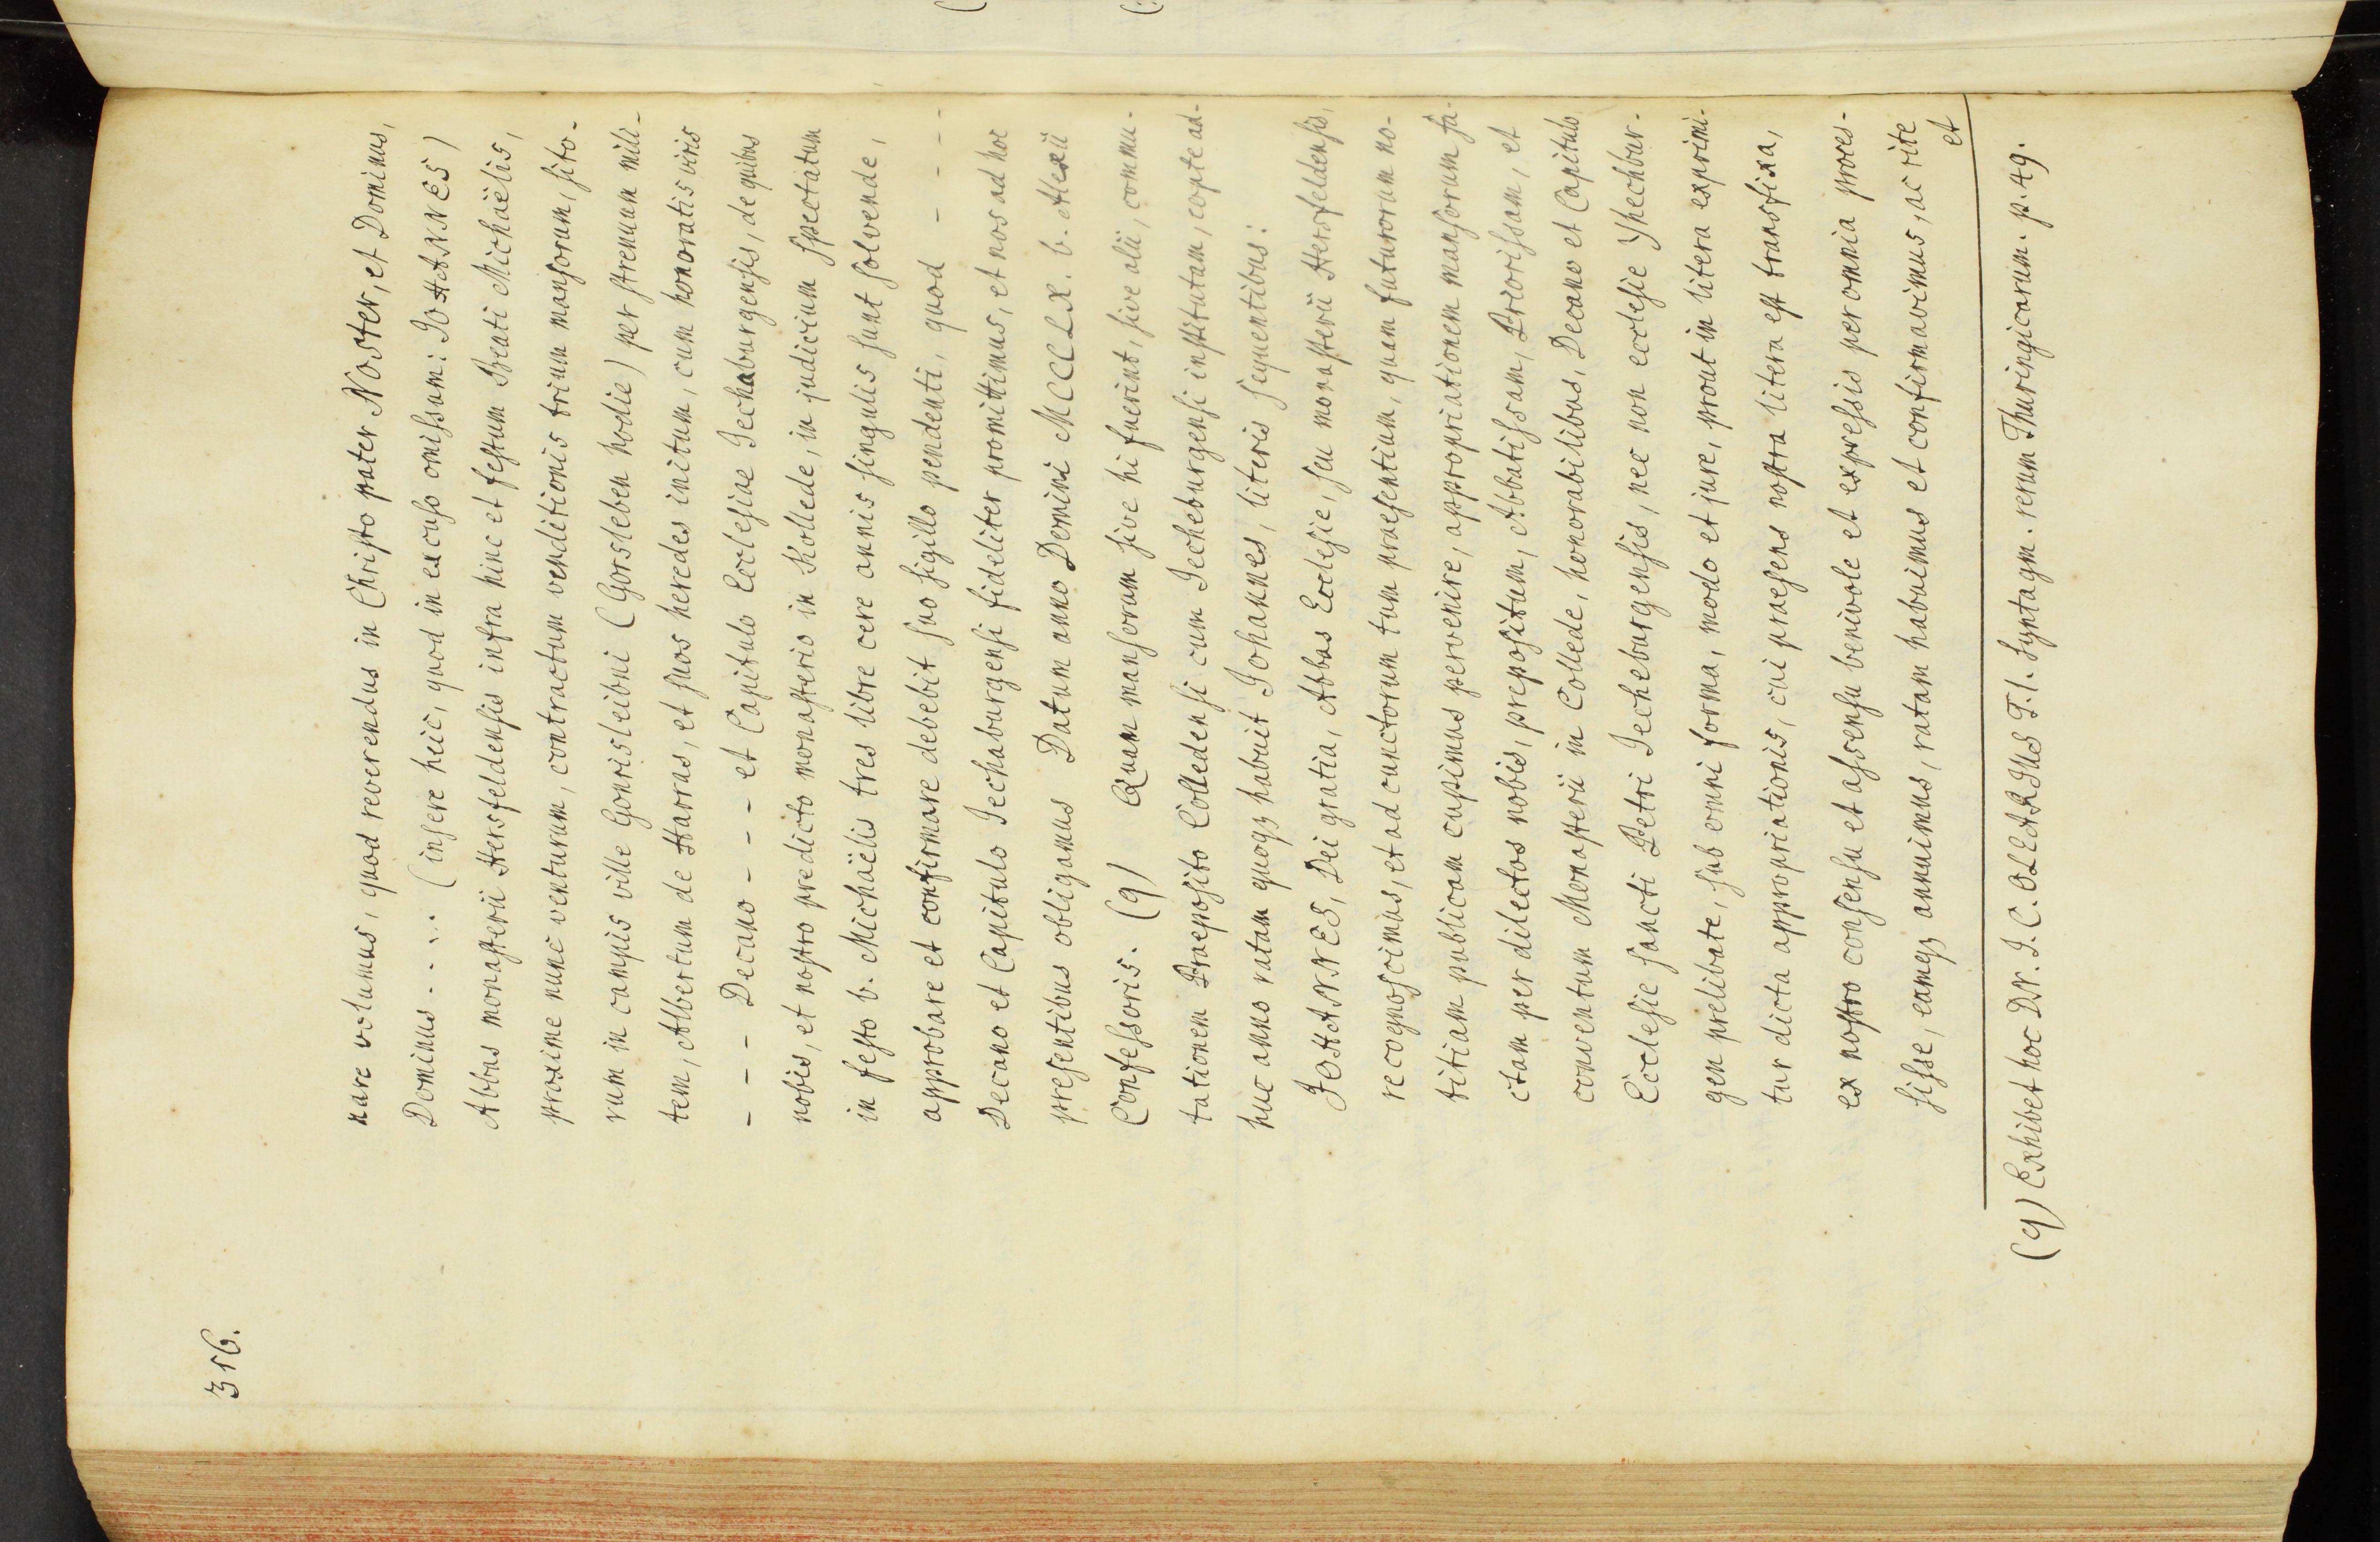 316.
nare volumus, quod reverendus in Christo pater Noster, et Dominus,
Dominus - - . . . (insere heic, quod in excuso omissum: IOHANNES)
Abbas monasterii Hersfeldensis infra hinc et festum Beati Michaëlis,
proxime nunc venturum, contractum venditionis trium mansorum, sito-
rum in campis ville Gourisleibni (Gorsleben hodie) per strenuum mili-
tem, Albertum de Harras, et suos heredes initum, cum honoratis viris
- - - Decano - - - et Capitulo Ecclesiae Jechaburgensis, de quibus
nobis, et nostro predicto monasterio in Kollede, in judicium spectatum
in festo b. Michaëlis tres libre cere annis singulis sunt solvende,
approbare et confirmare debebit suo sigillo pendenti, quod - - - -
Decano et Capitulo Jechaburgensi fideliter promittimus, et nos ad hoc
presentibus obligamus Datum anno Domini MCCCLX. b. Alexii
Confessoris. (q) Quam mansorum sive hi fuerint, sive alii, commu-
tationem Praeposito Colledensi cum Jecheburgensi institutam, eopte ad-
huc anno ratam quoqz habuit Johannes, literis sequentibus:
JOHANNES, Dei gratia, Abbas Ecclesie, seu monasterii Hersfeldensis,
recognoscimus, et ad cunctorum tum praesentium, quam futurorum no-
titiam publicam cupimus pervenire, appropriationem mansorum fa-
ctam per dilectos nobis, prepositum, Abbatissam, Priorissam, et
conventum Monasterii in Collede, honorabilibus, Decano et Capitulo
Ecclesie sancti Petri Jecheburgensis, nec non ecclesie Yhechbur-
gen prelibate, sub omni forma, modo et jure, prout in litera exprimi-
tur dicta appropriationis, cui praesens nostra litera est transfixa,
ex nostro consensu et assensu benivole et expressis per omnia proces-
sisse, eamqz annuimus, ratam habuimus et confirmavimus, ac rite
et
(q) Exhibet hoc DN. J. C. OLEARIUS T. I. Syntagm. rerum Thuringicarum. p. 49.